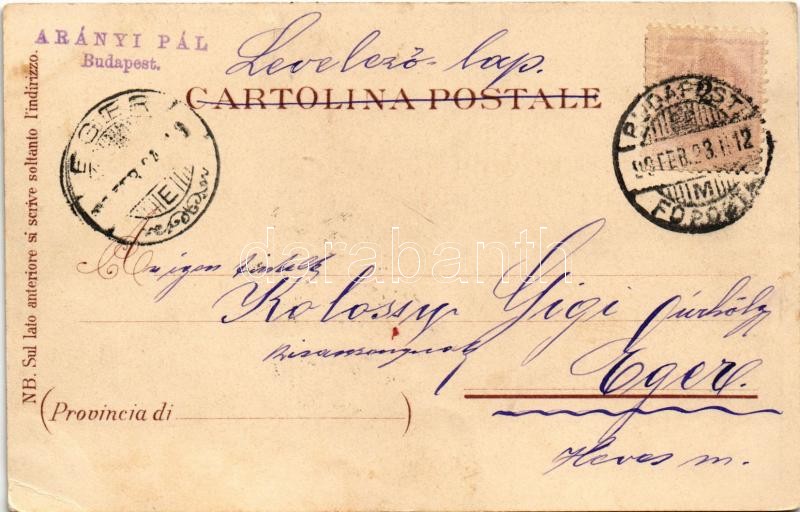 ARÁNYI PÁL
Budapest.
Levelező-lap.
CARTOLINA POSTALE
BUDAPEST
99 FEB. 23.
M
FŐPOST
EGER
E
NB. Sul lato anteriore si scrive soltanto l'indirizzo.
darabanth
igen
Kolossy Gigi úrhölgy
Eger.
(Provincia di )
Heves m.